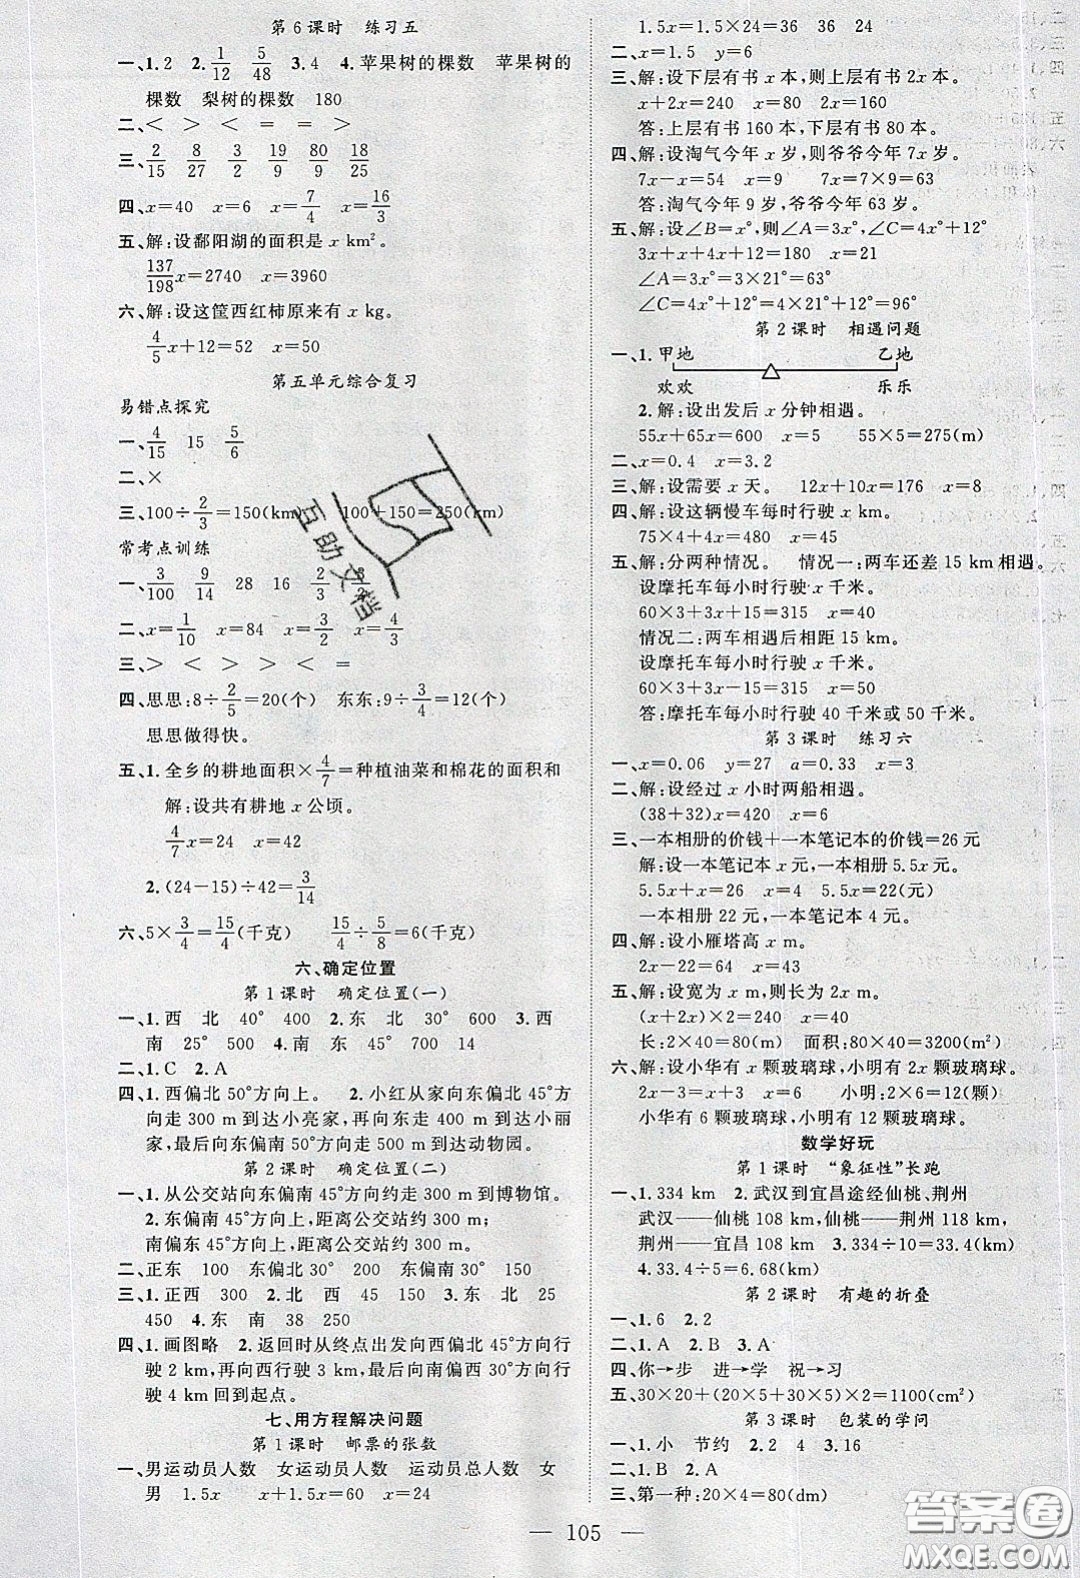 第6课时 练习五
一、1.2 2.1/12 5/48 3.4 4.苹果树的棵数 苹果树的
棵数 梨树的棵数 180
二、< > < = = >
三、2/15 8/27 19/9 80/9 18/25
四、x=40 x=6 x=7/4 x=16/3
五、解:设鄱阳湖的面积是 x km²。
137/198x=2740 x=3960
六、解:设这筐西红柿原来有 x kg。
4/5x+12=52 x=50
第五单元综合复习
易错点探究
一、4/15 15 5/6
二、×
三、100÷2/3=150(km) 100+150=250(km)
常考点训练
一、3/100 9/14 28 16 2/3
二、x=1/10 x=84 x=3/2 x=4/3
三、> < > > < =
四、思思:8÷2/5=20(个) 东东:9÷3/4=12(个)
思思做得快。
五、1.全乡的耕地面积×4/7=种植油菜和棉花的面积和
解:设共有耕地 x 公顷。
4/7x=24 x=42
2.(24-15)÷42=3/14
六、5×3/4=15/4(千克) 15/4÷5/8=6(千克)
六、确定位置
第1课时 确定位置(一)
一、1.西 北 40° 400 2.东 北 30° 600 3.西
南 25° 500 4.南 东 45° 700 14
二、1.C 2.A
四、1.西偏北50°方向上。 2.小红从家向东偏北45°方
向走 300 m 到达小亮家,再向东走 400 m 到达小丽
家,最后向东偏南50°方向走 500 m 到达动物园。
第2课时 确定位置(二)
一、1.从公交站向东偏南 45°方向约走 300 m到博物馆。
2.东偏南 45°方向上,距离公交站约 300 m;
南偏东 45°方向上,距离公交站约 300 m。
二、正东 100 东偏北 30° 200 南偏西 30° 120
三、1.正西 300 2.北 西 45 150 3.东 北 25
450 东 南 38 250
四、1.画图略 2.返回时从终点出发向西偏北 45°方向行
驶 2 km,再向西行驶 3 km,最后向南偏西 50°方向
行驶 4 km 回到起点。
七、用方程解决问题
第1课时 邮票的张数
一、男运动员人数 女运动员人数 运动员总人数 女
男 1.5x x+1.5x=60 x=24
1.5x=1.5×24=36 36 24
二、x=1.5 y=6
三、解:设下层有书 x 本,则上层有书 2x 本。
x+2x=240 x=80 2x=160
答:上层有书 160 本,下层有书 80 本。
四、解:设淘气今年 x 岁,则爷爷今年 7x 岁。
7x-x=54 x=9 7x=7×9=63
答:淘气今年 9 岁,爷爷今年 63 岁。
五、解:设∠B=x°,则∠A=3x°,∠C=4x°+12°
3x+x+4x+12=180 x=21
∠A=3x°=3×21°=63°
∠C=4x°+12°=4×21°+12°=96°
第2课时 相遇问题
一、1.甲地 乙地
欢欢 乐乐
2.解:设出发后 x 分钟相遇。
55x+65x=600 x=5 55×5=275(m)
二、x=0.4 x=3.2
三、解:设需要 x 天。 12x+10x=176 x=8
四、解:设这辆慢车每时行驶 x km。
75×4+4x=480 x=45
五、解:分两种情况。 情况一:两车还差 15 km相遇。
设摩托车每小时行驶 x 千米。
60×3+3x+15=315 x=40
情况二:两车相遇后相距 15 km。
设摩托车每小时行驶 x 千米。
60×3+3x-15=315 x=50
答:摩托车每小时行驶 40 千米或 50 千米。
第3课时 练习六
一、x=0.06 y=27 a=0.33 x=3
二、解:设经过 x 小时两船相遇。
(38+32)x=420 x=6
三、一本相册的价钱+一本笔记本的价钱=26元
解:设一本笔记本 x 元,一本相册 5.5x元。
5.5x+x=26 x=4 5.5x=22(元)
一本相册 22 元,一本笔记本 4 元。
四、解:设小雁塔高 x m。
2x-22=64 x=43
五、解:设宽为 x m,则长为 2x m。
(x+2x)×2=240 x=40
长:2×40=80(m) 面积:80×40=3200(m²)
六、解:设小华有 x 颗玻璃球,小明有 2x 颗玻璃球。
2x-3=x+3 x=6 小明:2×6=12(颗)
小华有 6 颗玻璃球,小明有 12 颗玻璃球。
数学好玩
第1课时 “象征性”长跑
一、1.334 km 2.武汉到宜昌途经仙桃、荆州
武汉——仙桃 108 km,仙桃——荆州 118 km,
荆州——宜昌 108 km 3.334÷10=33.4(km)
4.33.4÷5=6.68(km)
第2课时 有趣的折叠
一、1.6 2.2
二、1.A 2.B 3.A
四、你→步 进→学 祝→习
五、30×20+(20×5+30×5)×2=1100(cm²)
第3课时 包装的学问
一、1.小 节约 2.2 4 3.16
二、1.B 2.A
三、第一种:20×4=80(dm)
105
互助文档
答案圈
MXQE.COM